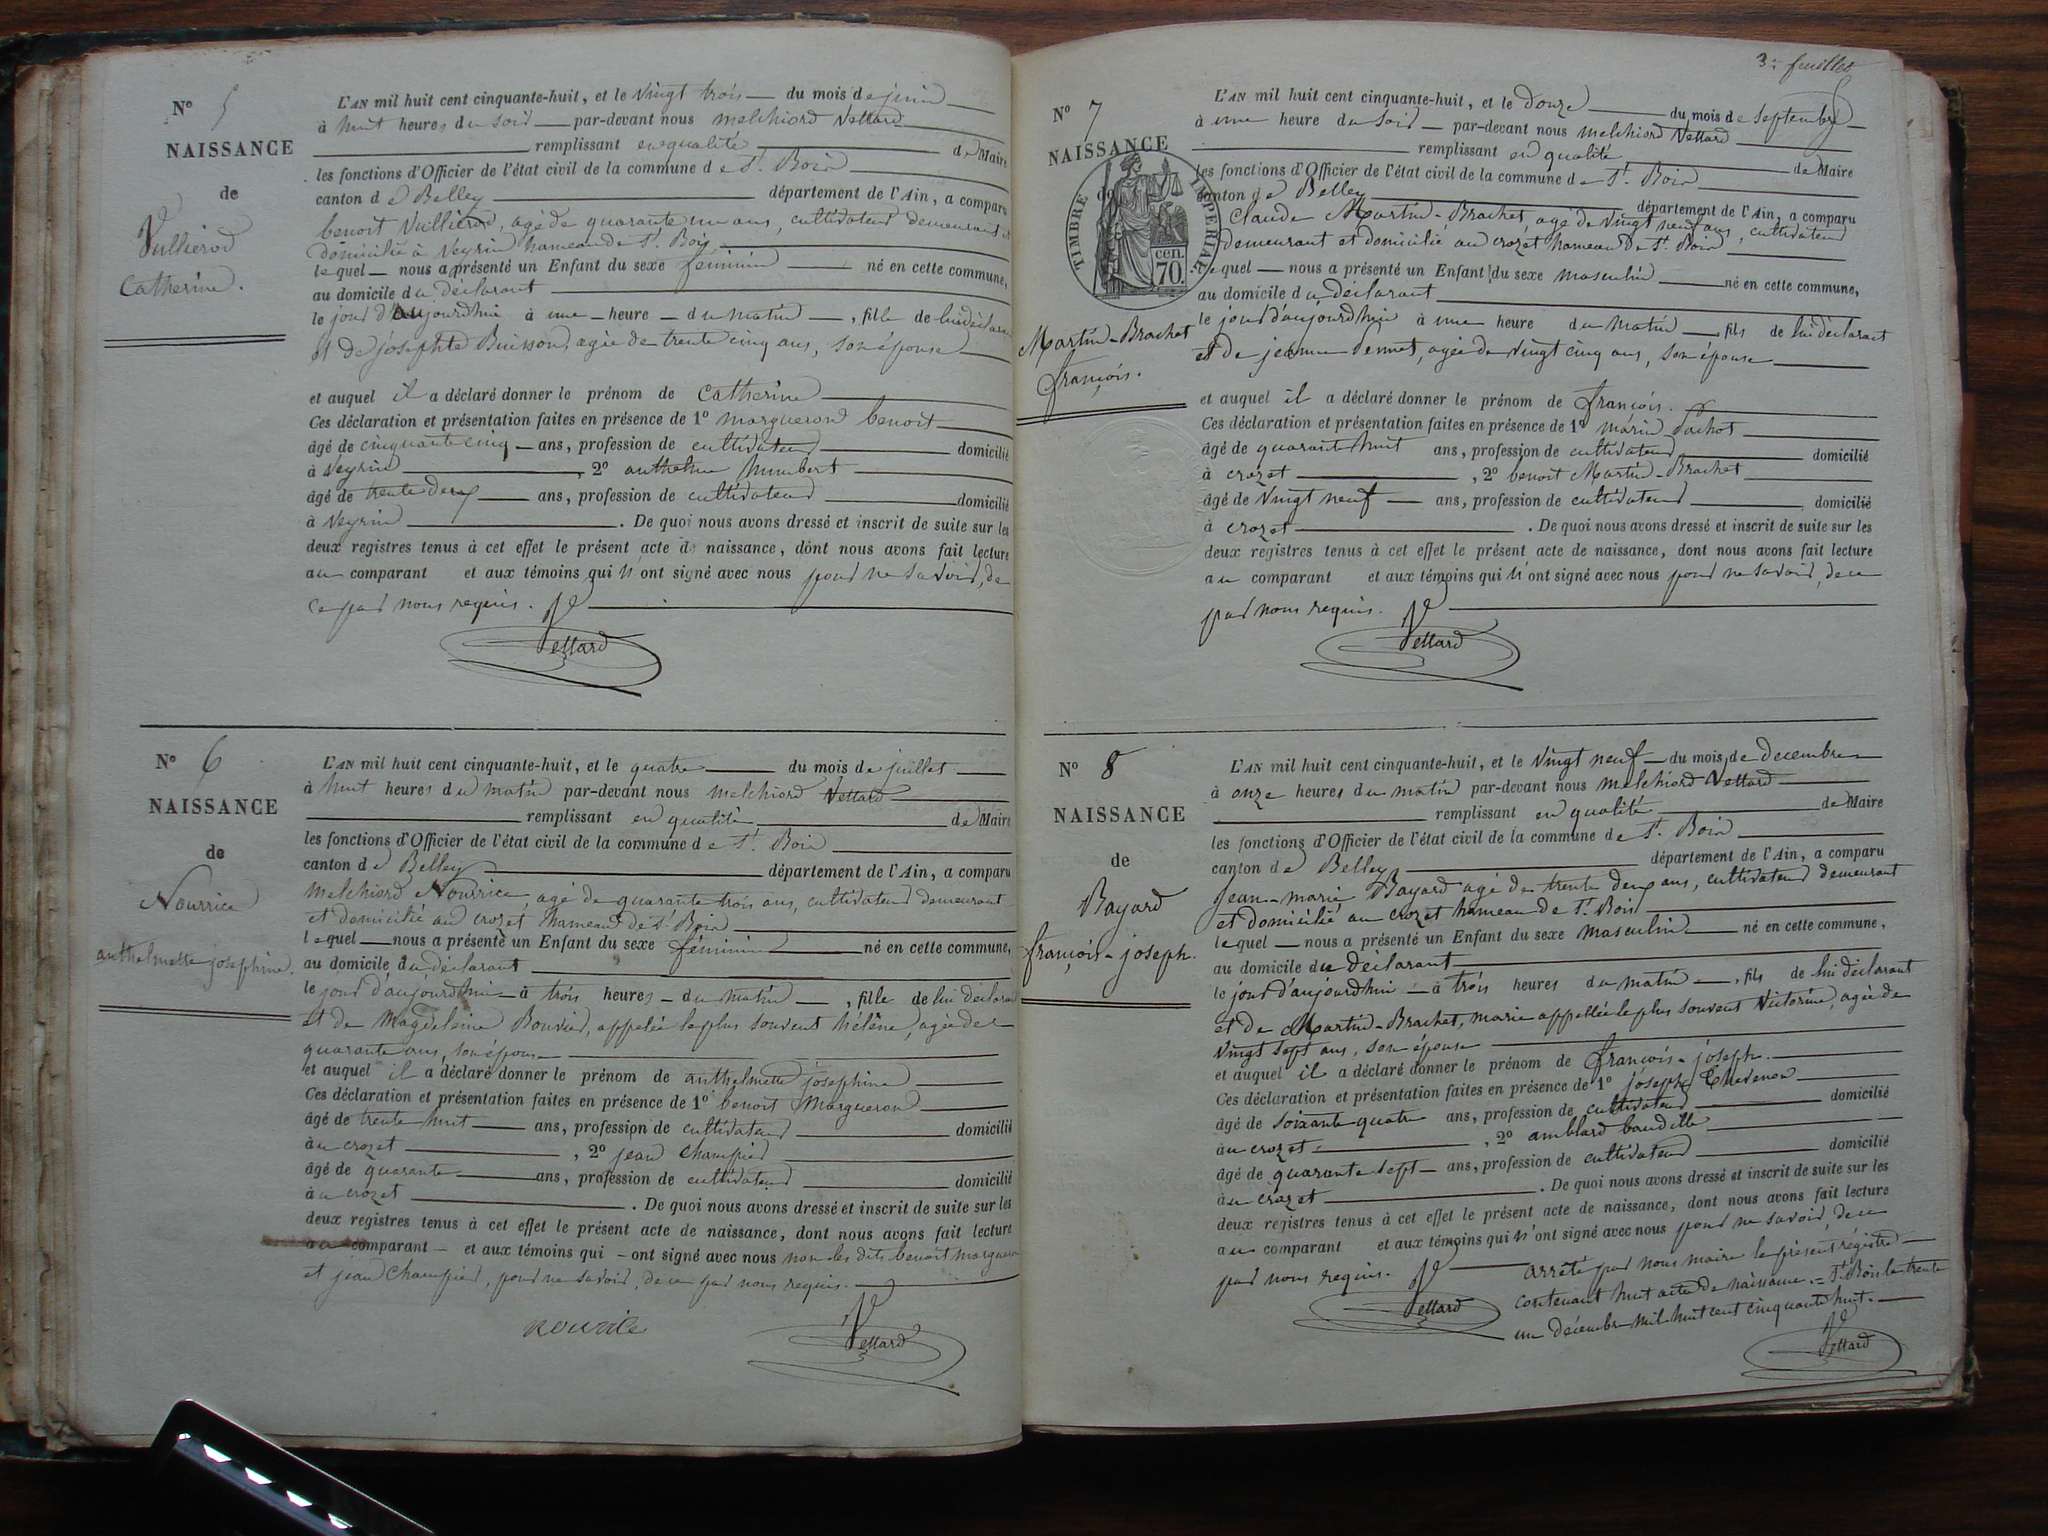 N° 5
NAISSANCE
de
Vullierod
Catherine.
L'AN mil huit cent cinquante-huit, et le vingt trois du mois de juin
à huit heures du soir par-devant nous melchiord Vettard
remplissant en qualité de Maire
les fonctions d'Officier de l'état civil de la commune de St. Bois
canton de Belley département de l'Ain, a comparu
benoit Vullierod, agé de quarante un ans, cultivateur demeurant et
domicilié à Veyrin hameau de St. Bois
lequel nous a présenté un Enfant du sexe féminin né en cette commune,
au domicile du déclarant
le jour d'aujourdhui à une heure du matin, fille de lui déclarant
et de josephte Buisson, agée de trente cinq ans, son épouse
et auquel il a déclaré donner le prénom de Catherine
Ces déclaration et présentation faites en présence de 1° margueron benoit
âgé de cinquante cinq ans, profession de cultivateur domicilié
à Veyrin, 2° anthelme humbert
âgé de trente deux ans, profession de cultivateur domicilié
à Veyrin. De quoi nous avons dressé et inscrit de suite sur les
deux registres tenus à cet effet le présent acte de naissance, dont nous avons fait lecture
au comparant et aux témoins qui n'ont signé avec nous pour ne savoir, de
ce par nous requis.
Vettard
N° 6
NAISSANCE
de
Nourrice
anthelmette josephine.
L'AN mil huit cent cinquante-huit, et le quatre du mois de juillet
à huit heures du matin par-devant nous melchiord Vettard
remplissant en qualité de Maire
les fonctions d'Officier de l'état civil de la commune de St. Bois
canton de Belley département de l'Ain, a comparu
melchiord Nourrice, agé de quarante trois ans, cultivateur demeurant
et domicilié au crozet hameau de St. Bois
lequel nous a présenté un Enfant du sexe féminin né en cette commune,
au domicile du déclarant
le jour d'aujourdhui à trois heures du matin, fille de lui déclarant
et de Magdeleine Bouvier, appelée le plus souvent hélène, agée de
quarante ans, son épouse
et auquel il a déclaré donner le prénom de anthelmette josephine
Ces déclaration et présentation faites en présence de 1° benoit Margueron
âgé de trente huit ans, profession de cultivateur domicilié
au crozet, 2° jean Champier
âgé de quarante ans, profession de cultivateur domicilié
au crozet. De quoi nous avons dressé et inscrit de suite sur les
deux registres tenus à cet effet le présent acte de naissance, dont nous avons fait lecture
au comparant et aux témoins qui ont signé avec nous non les dits benoit margueron
et jean Champier, pour ne savoir, de ce par nous requis.
Vettard
3e feuillet
N° 7
NAISSANCE
de
TIMBRE IMPERIAL
70 cen.
Martin-Brachet
françois.
L'AN mil huit cent cinquante-huit, et le douze du mois de septembre
à une heure du soir par-devant nous melchiord Vettard
remplissant en qualité de Maire
les fonctions d'Officier de l'état civil de la commune de St. Bois
canton de Belley département de l'Ain, a comparu
Claude Martin-Brachet, agé de vingt neuf ans, cultivateur
demeurant et domicilié au crozet hameau de St. Bois
lequel nous a présenté un Enfant du sexe masculin né en cette commune,
au domicile du déclarant
le jour d'aujourdhui à une heure du matin, fils de lui déclarant
et de jeanne, agée de vingt cinq ans, son épouse
et auquel il a déclaré donner le prénom de françois.
Ces déclaration et présentation faites en présence de 1° marin Pochot
âgé de quarante huit ans, profession de cultivateur domicilié
à crozet, 2° benoit Martin-Brachet
âgé de vingt neuf ans, profession de cultivateur domicilié
à crozet. De quoi nous avons dressé et inscrit de suite sur les
deux registres tenus à cet effet le présent acte de naissance, dont nous avons fait lecture
au comparant et aux témoins qui n'ont signé avec nous pour ne savoir, de ce
par nous requis.
Vettard
N° 8
NAISSANCE
de
Bayard
françois-joseph.
L'AN mil huit cent cinquante-huit, et le vingt neuf du mois de decembre
à onze heures du matin par-devant nous melchiord Vettard
remplissant en qualité de Maire
les fonctions d'Officier de l'état civil de la commune de St. Bois
canton de Belley département de l'Ain, a comparu
jean-marie Bayard agé de trente deux ans, cultivateur demeurant
et domicilié au crozet hameau de St. Bois
lequel nous a présenté un Enfant du sexe masculin né en cette commune,
au domicile du déclarant
le jour d'aujourdhui à trois heures du matin, fils de lui déclarant
et de Martin-Brachet, marie appellée le plus souvent Victorine, agée de
vingt sept ans, son épouse
et auquel il a déclaré donner le prénom de françois-joseph.
Ces déclaration et présentation faites en présence de 1° joseph Thevenon
âgé de soixante quatre ans, profession de cultivateur domicilié
au crozet, 2° amblard baudille
âgé de quarante sept ans, profession de cultivateur domicilié
au crozet. De quoi nous avons dressé et inscrit de suite sur les
deux registres tenus à cet effet le présent acte de naissance, dont nous avons fait lecture
au comparant et aux témoins qui n'ont signé avec nous pour ne savoir, de ce
par nous requis.
Vettard
arrêté par nous maire le présent régistre
contenant huit actes de naissance. = St. Bois le trente
un décembre mil huit cent cinquante huit.
Vettard